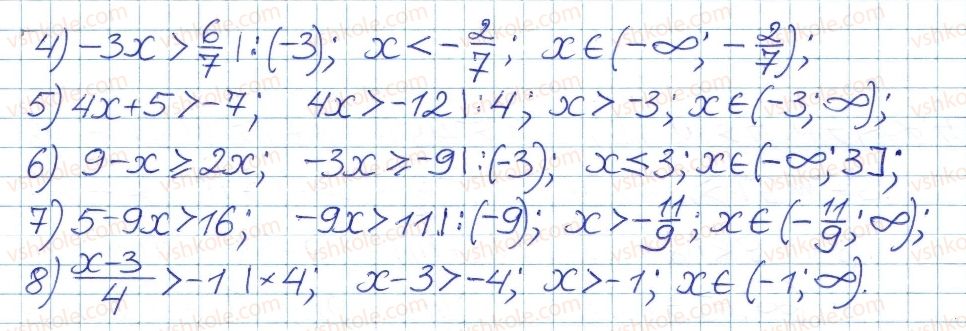 4) -3x > 6/7 |:(-3); x < -2/7; x∈(-∞; -2/7);
5) 4x+5 > -7; 4x > -12 |:4; x > -3; x∈(-3; ∞);
6) 9-x ≥ 2x; -3x ≥ -9 |:(-3); x ≤ 3; x∈(-∞; 3];
7) 5-9x > 16; -9x > 11 |:(-9); x > -11/9; x∈(-11/9; ∞);
8) (x-3)/4 > -1 |×4; x-3 > -4; x > -1; x∈(-1; ∞).